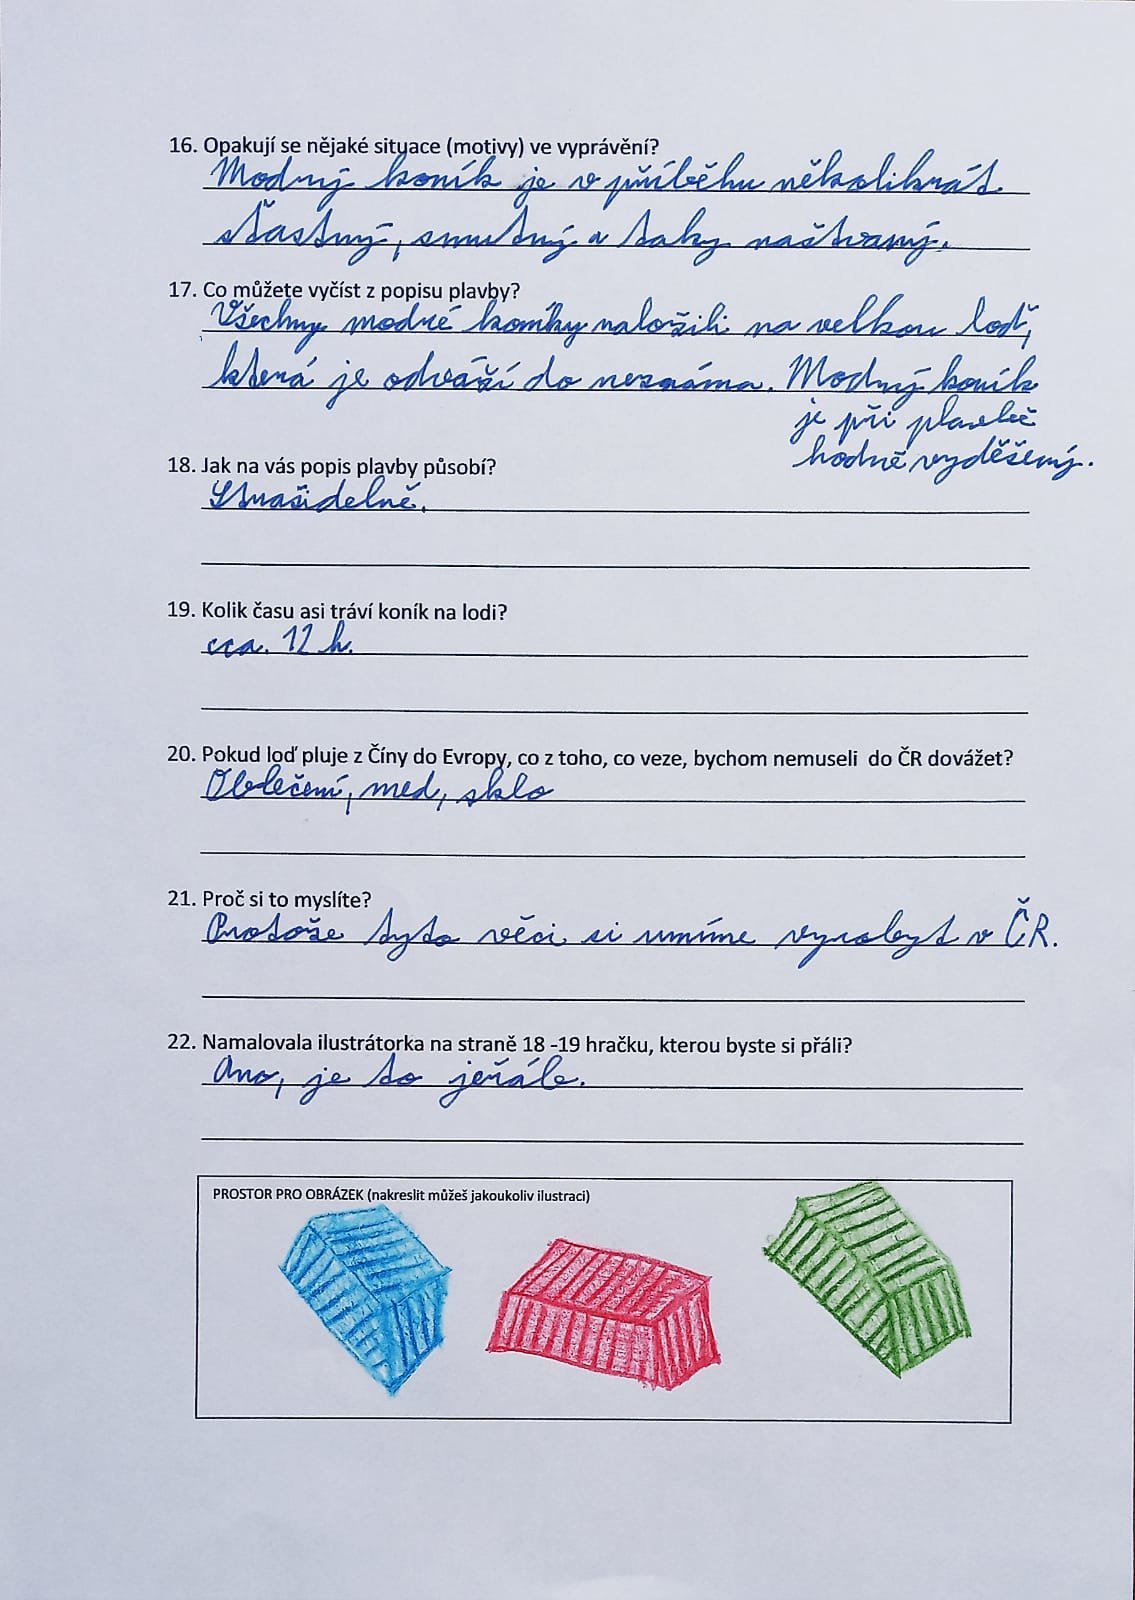 16. Opakují se nějaké situace (motivy) ve vyprávění?
Modrý koník je v příběhu několikrát
šťastný, smutný a taky naštvaný.
17. Co můžete vyčíst z popisu plavby?
Všechny modré koníky naložili na velkou loď,
která je odváží do neznáma. Modrý koník
je při plavbě
hodně vyděšený.
18. Jak na vás popis plavby působí?
Strašidelně.
19. Kolik času asi tráví koník na lodi?
cca. 12 h.
20. Pokud loď pluje z Číny do Evropy, co z toho, co veze, bychom nemuseli do ČR dovážet?
Oblečení, med, sklo
21. Proč si to myslíte?
Protože tyto věci si umíme vyrobyt v ČR.
22. Namalovala ilustrátorka na straně 18 -19 hračku, kterou byste si přáli?
Ano, je to jeřáb.
PROSTOR PRO OBRÁZEK (nakreslit můžeš jakoukoliv ilustraci)